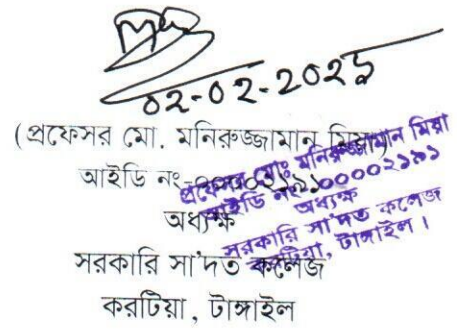 02-02-2025
(প্রফেসর মো. মনিরুজ্জামান মিয়া)
আইডি নং-০০০০২১৯১
অধ্যক্ষ
সরকারি সা'দত কলেজ
করটিয়া, টাঙ্গাইল
প্রফেসর মোঃ মনিরুজ্জামান মিয়া
আইডি নং-০০০০২১৯১
অধ্যক্ষ
সরকারি সা'দত কলেজ
করটিয়া, টাঙ্গাইল।